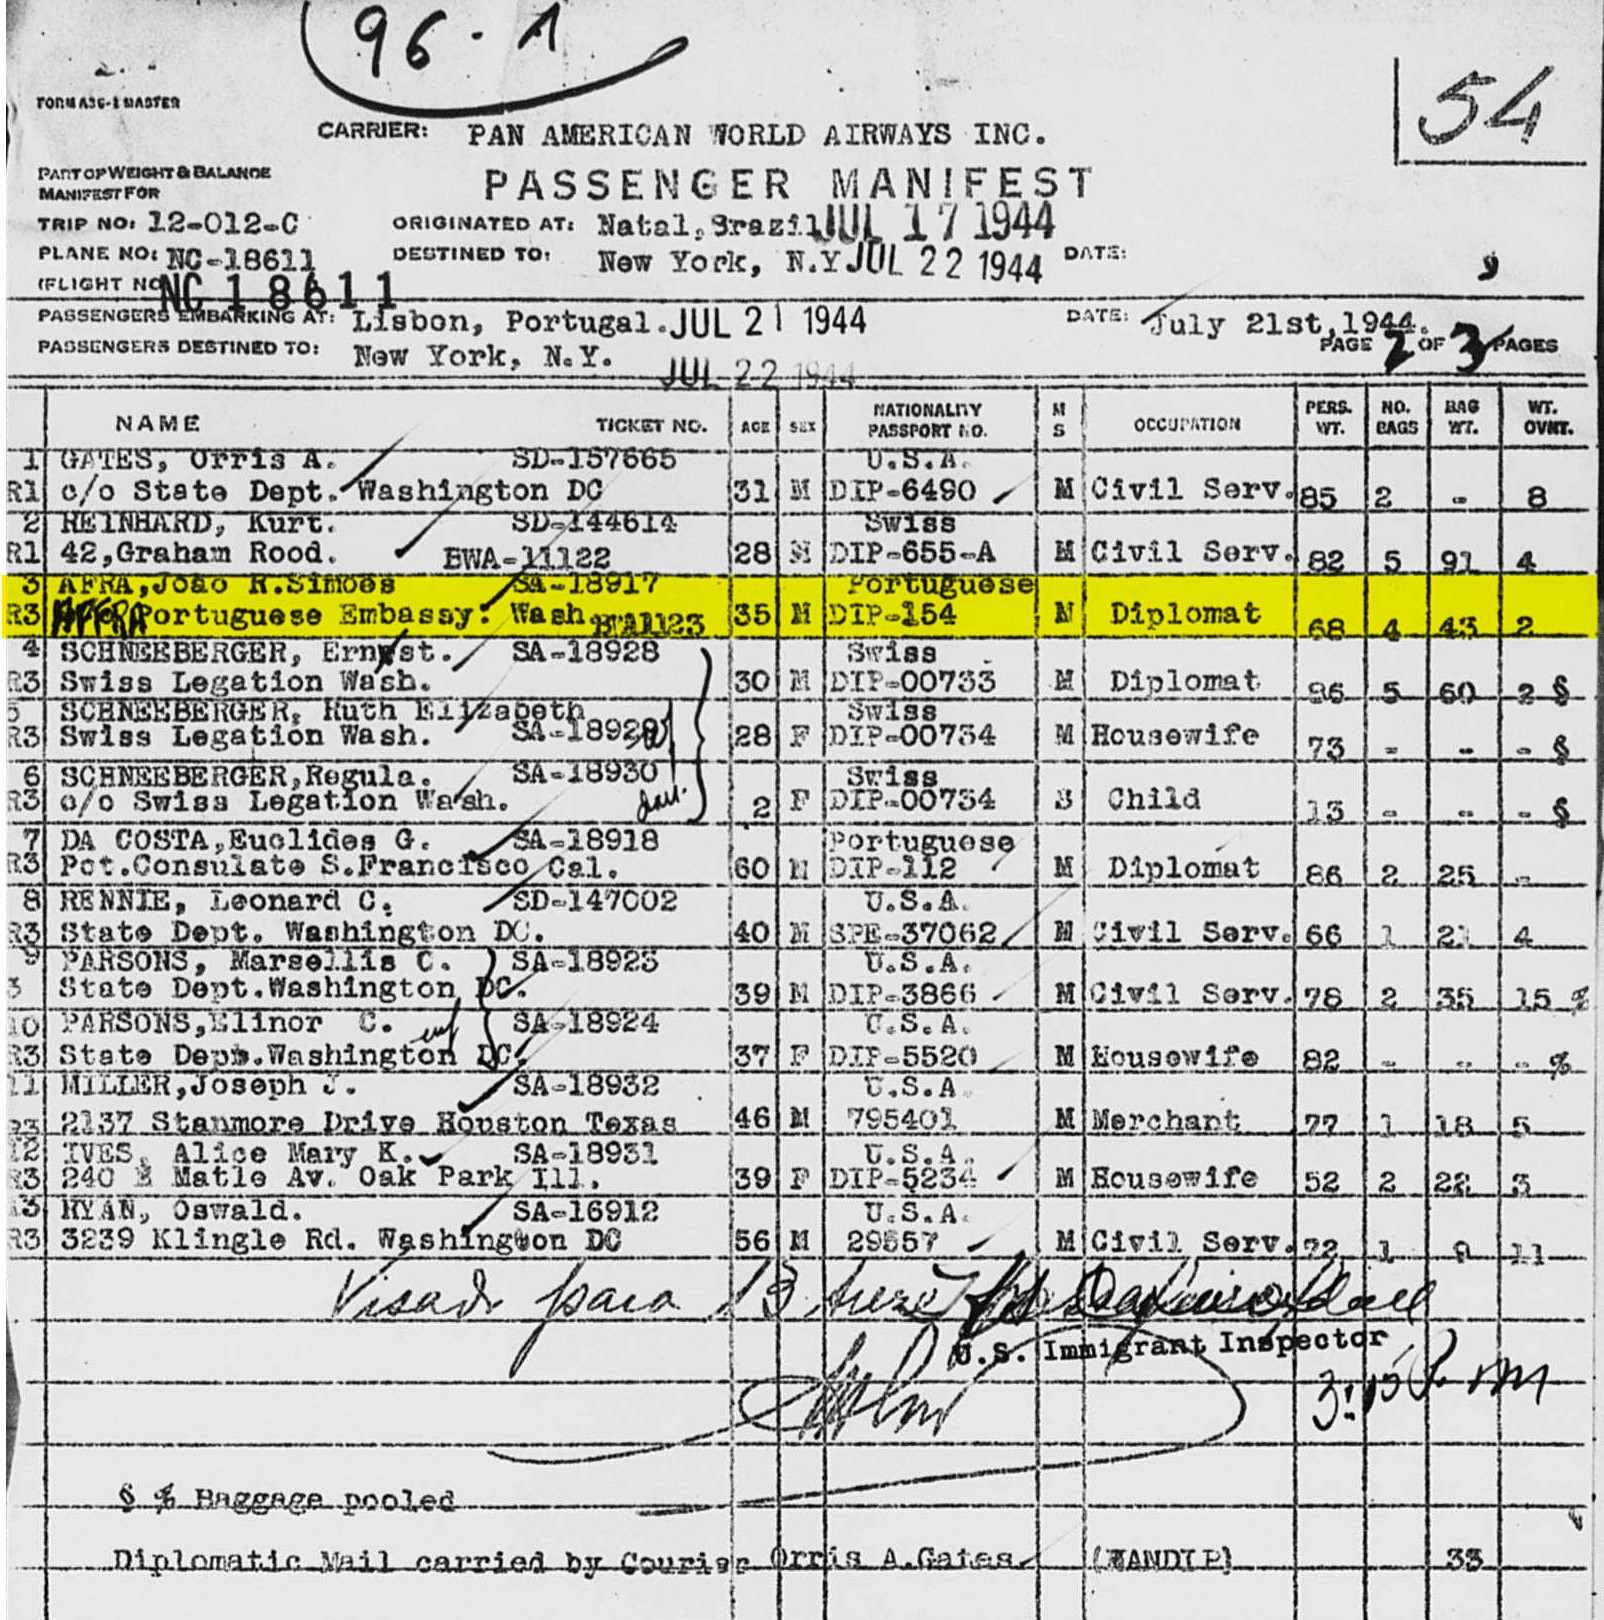 96-A
54
FORM A36-1 MASTER
CARRIER: PAN AMERICAN WORLD AIRWAYS INC.
PART OF WEIGHT & BALANCE
MANIFEST FOR
PASSENGER MANIFEST
TRIP NO: 12-012-C ORIGINATED AT: Natal, Brazil JUL 17 1944
PLANE NO: NC-18611 DESTINED TO: New York, N.Y JUL 22 1944 DATE:
(FLIGHT NO NC 18611
PASSENGERS EMBARKING AT: Lisbon, Portugal. JUL 21 1944 DATE: July 21st, 1944.
PAGE 2 OF 3 PAGES
PASSENGERS DESTINED TO: New York, N.Y.
JUL 22 1944
NAME TICKET NO. AGE SEX NATIONALITY PASSPORT NO. M S OCCUPATION PERS. WT. NO. BAGS BAG WT. WT. OVNT.
1 GATES, Orris A. SD-157665 U.S.A.
R1 c/o State Dept. Washington DC 31 M DIP-6490 M Civil Serv. 85 2 - 8
2 REINHARD, Kurt. SD-144614 Swiss
R1 42,Graham Rood. BWA-11122 28 M DIP-655-A M Civil Serv. 82 5 91 4
3 AFRA,João R.Simoes SA-18917 Portuguese
R3 AFFRA Portuguese Embassy. Wash 35 M DIP-154 M Diplomat 68 4 43 2
4 SCHNEEBERGER, Ernest. SA-18928 Swiss
R3 Swiss Legation Wash. 30 M DIP-00733 M Diplomat 86 5 60 2 §
5 SCHNEEBERGER, Ruth Elizabeth Swiss
R3 Swiss Legation Wash. SA-18929 28 F DIP-00734 M Housewife 73 - - - §
6 SCHNEEBERGER,Regula. SA-18930 Swiss
R3 c/o Swiss Legation Wash. 2 F DIP-00734 S Child 13 - - - §
7 DA COSTA,Euclides G. SA-18918 Portuguese
R3 Pct.Consulate S.Francisco Cal. 60 M DIP-112 M Diplomat 86 2 25 -
8 RENNIE, Leonard C. SD-147002 U.S.A.
R3 State Dept. Washington DC. 40 M SPE-37062 M Civil Serv. 66 1 21 4
9 PARSONS, Marsellis C. SA-18923 U.S.A.
3 State Dept.Washington DC. 39 M DIP-3866 M Civil Serv. 78 2 35 15 %
10 PARSONS,Elinor C. SA-18924 U.S.A.
R3 State Dept.Washington DC. 37 F DIP-5520 M Housewife 82 - - - %
11 MILLER,Joseph J. SA-18932 U.S.A.
R3 2137 Stanmore Drive Houston Texas 46 M 795401 M Merchant 77 1 18 5
12 IVES, Alice Mary K. SA-18931 U.S.A.
R3 240 E Matle Av. Oak Park Ill. 39 F DIP-5234 M Housewife 52 2 22 3
13 RYAN, Oswald. SA-16912 U.S.A.
R3 3239 Klingle Rd. Washington DC 56 M 29557 M Civil Serv. 72 1 9 11
Visado para 13
U.S. Immigrant Inspector
3:15 P.m
§ % Baggage pooled
Diplomatic Mail carried by Courier Orris A.Gates. (HANDIP) 33